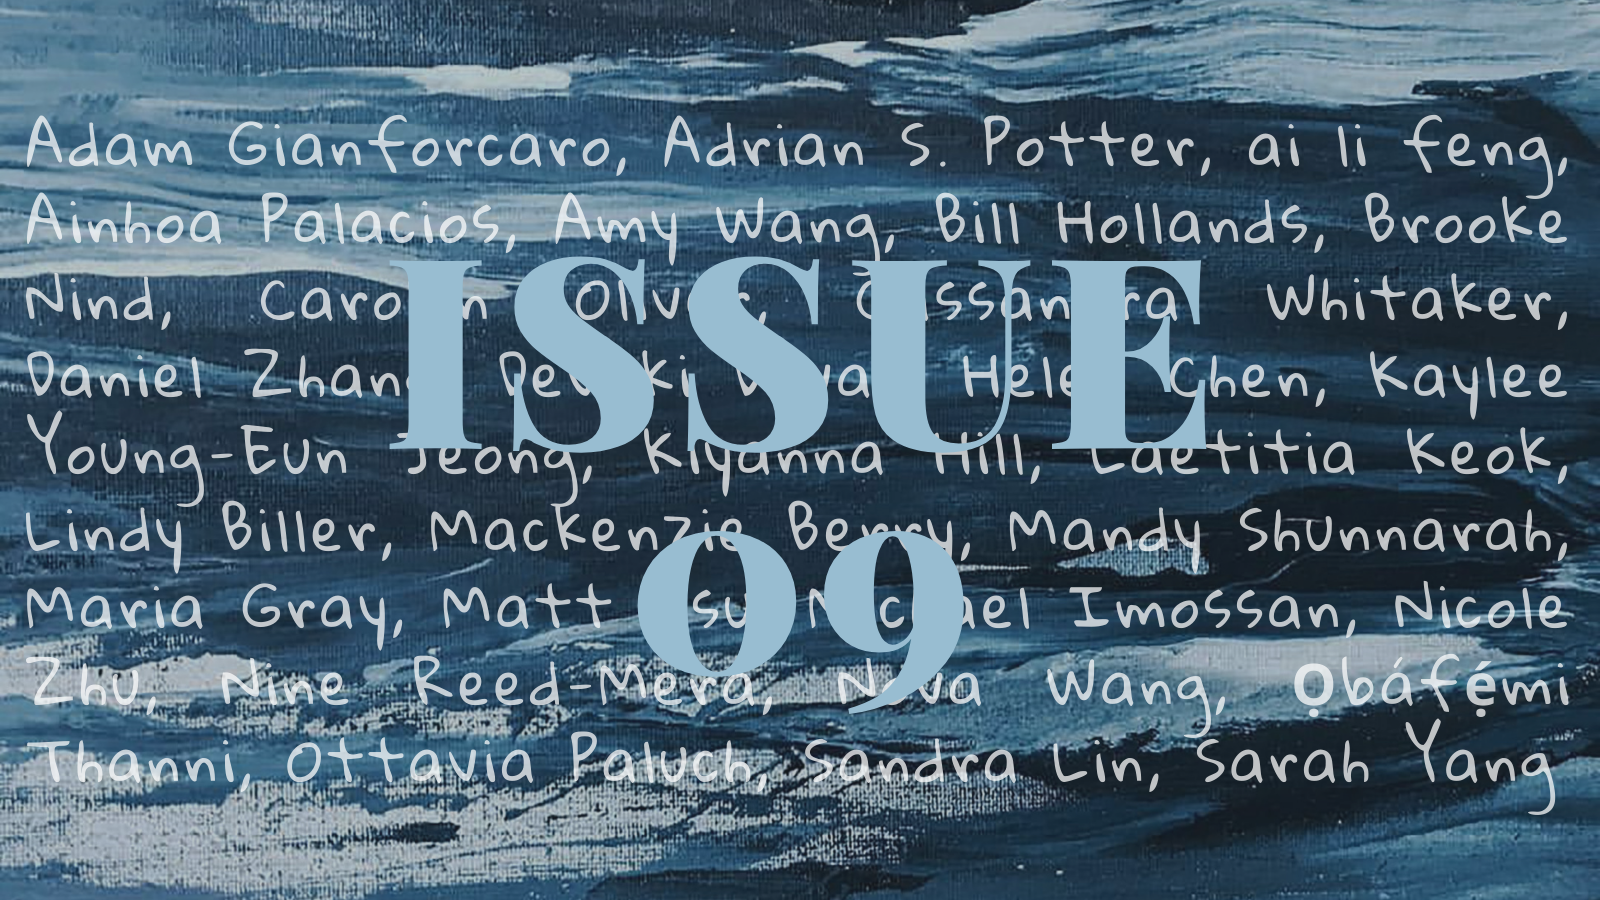 Adam Gianforcaro, Adrian S. Potter, ai li feng,
Ainhoa Palacios, Amy Wang, Bill Hollands, Brooke
Nind, Whitaker,
Daniel Zhang Chen, Kaylee
Young-Eun Jeong, Kiyanna Hill, Laetitia Keok,
Lindy Biller, Mackenzie Berry, Mandy Shunnarah,
Maria Gray, Matt Imossan, Nicole
Zhu, Nine Reed-Mera, Nova Wang, Ọbáfẹ́mi
Thanni, Ottavia Paluch, Sandra Lin, Sarah Yang
ISSUE
09